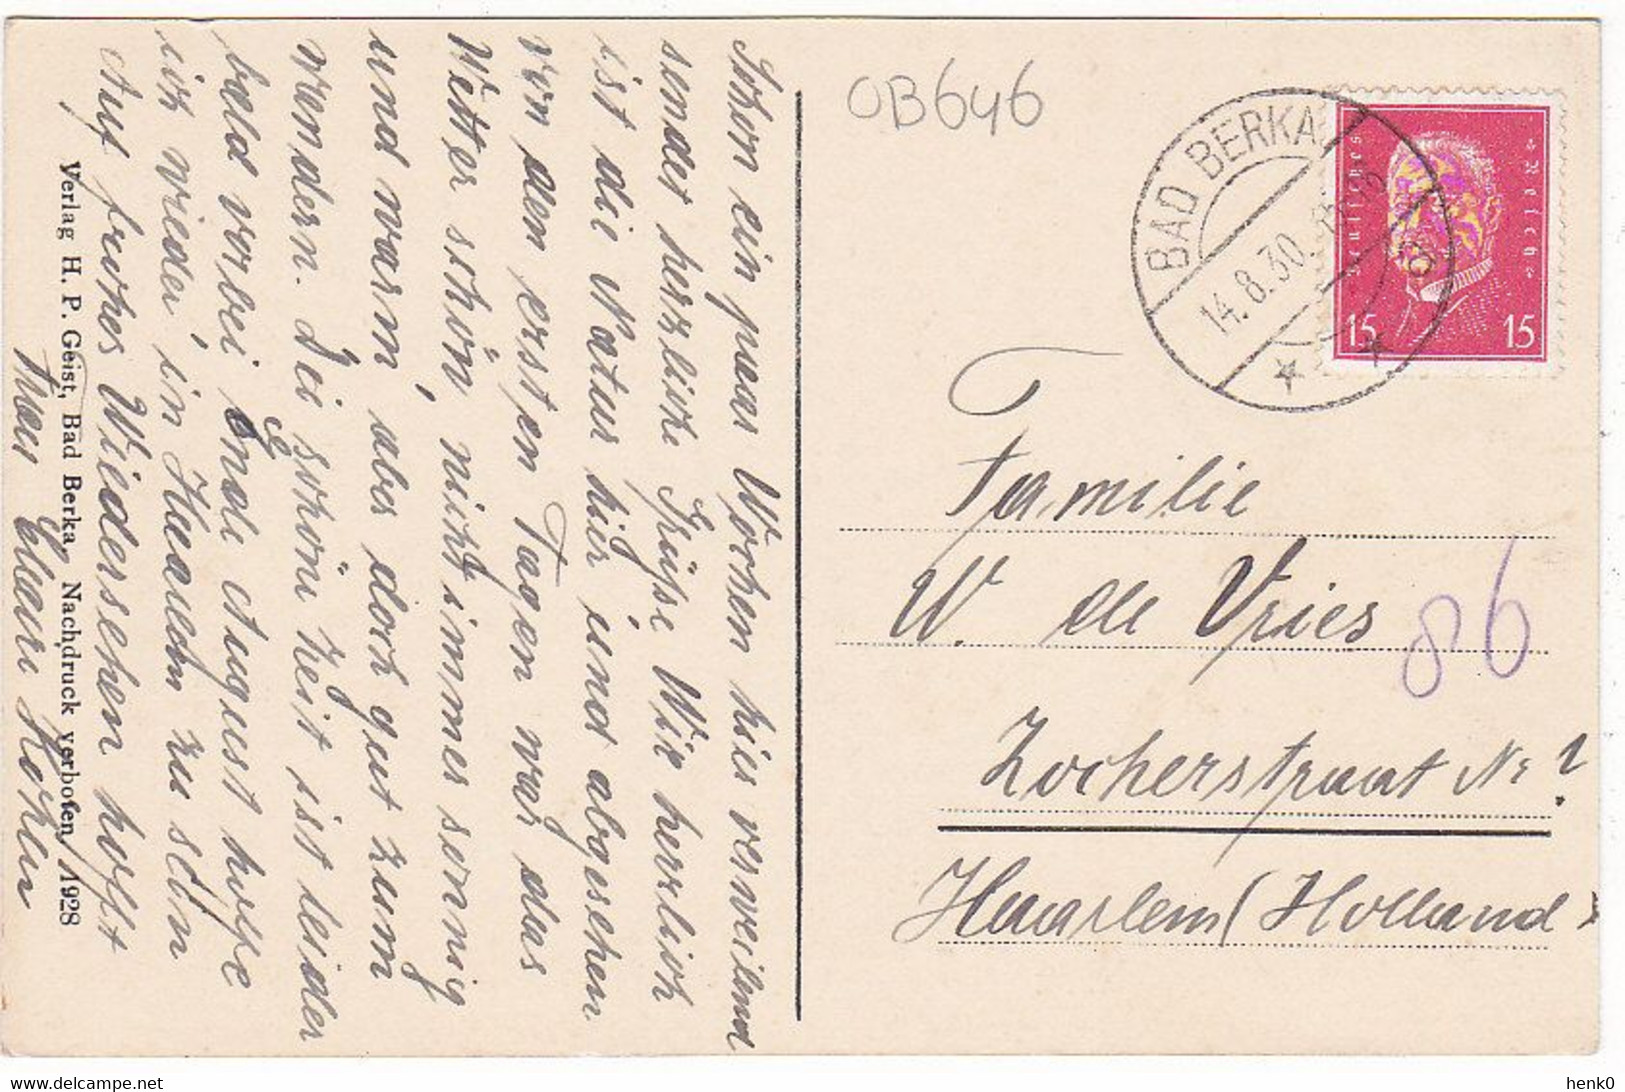 Schon ein paar Wochen hier verweilend
sendet herzliche Grüsse. Wie herrlich
ist die Natur hier und abgesehen
von den ersten Tagen war das
Wetter schön, nicht immer sonnig
und warm, aber doch gut zum
wandern. Die schöne Zeit ist leider
bald vorbei Ende August hoffe
ich wieder in Haarlem zu sein
Auf frohes Wiedersehen hofft
Verlag H. P. Geist, Bad Berka, Nachdruck verboten 1928
OB646
BAD BERKA
14.8.30.
Deutsches
Reich
15 15
Familie
W. de Vries
86
Zocherstraat Nr ?
Haarlem (Holland)
delcampe.net
henk0